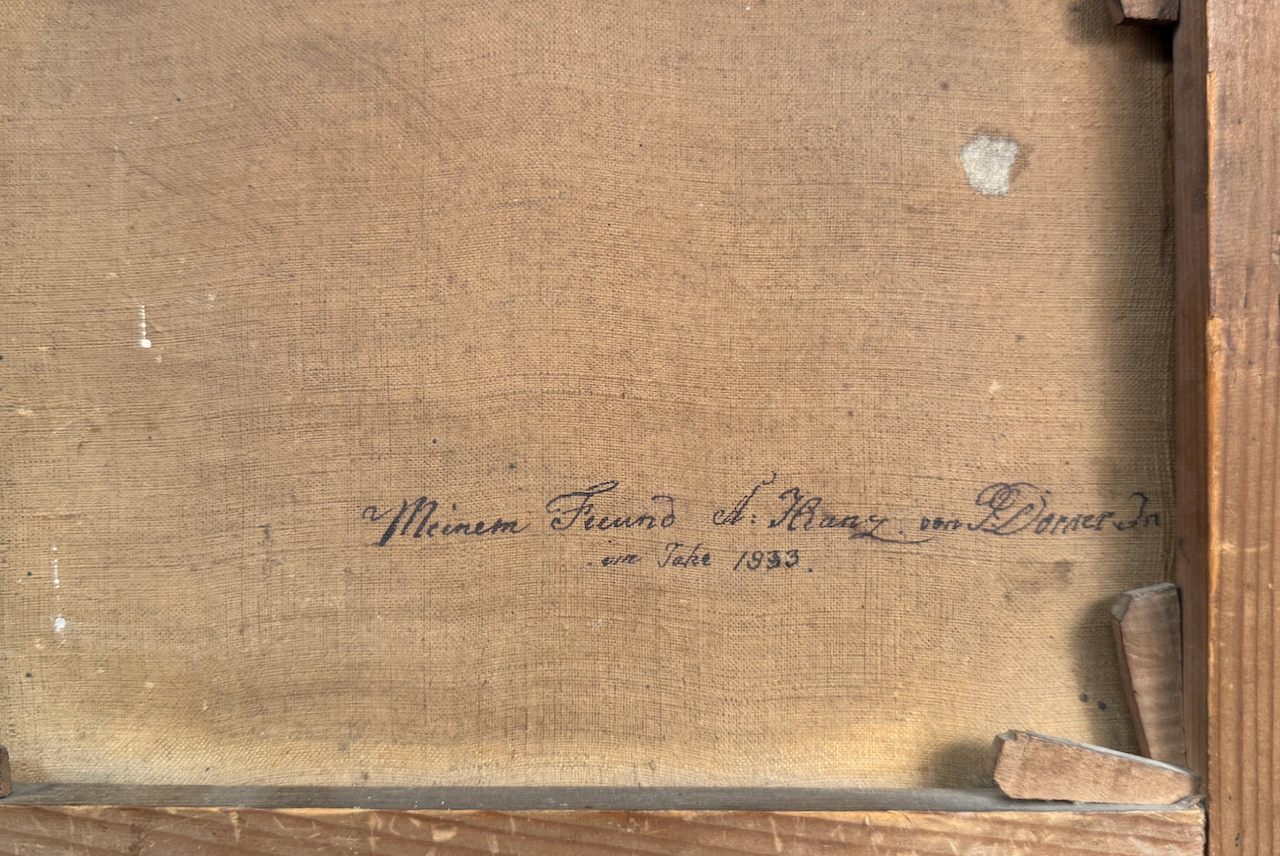 Meinem Freund A: Kranz von J Dorner Jn
im Jahr 1833.